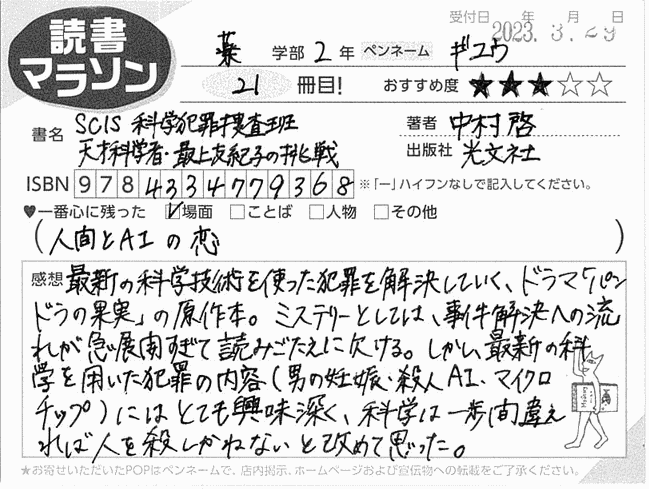 読書
マラソン
受付日 年 月 日
2023. 3. 29
薬 学部 2 年 ペンネーム ギユウ
21 冊目! おすすめ度 ★★★☆☆
書名 SCIS 科学犯罪捜査班
天才科学者・最上友紀子の挑戦
著者 中村啓
出版社 光文社
ISBN 9784334779368 ※「ー」ハイフンなしで記入してください。
♥一番心に残った ☑場面 □ことば □人物 □その他
(人間とAIの恋)
感想 最新の科学技術を使った犯罪を解決していく、ドラマ「パン
ドラの果実」の原作本。ミステリーとしては、事件解決への流
れが急展開すぎて読みごたえに欠ける。しかし、最新の科
学を用いた犯罪の内容(男の妊娠・殺人AI・マイクロ
チップ)にはとても興味深く、科学は一歩間違え
れば人を殺しかねないと改めて思った。
★お寄せいただいたPOPはペンネームで、店内掲示、ホームページおよび宣伝物への転載をご了承ください。